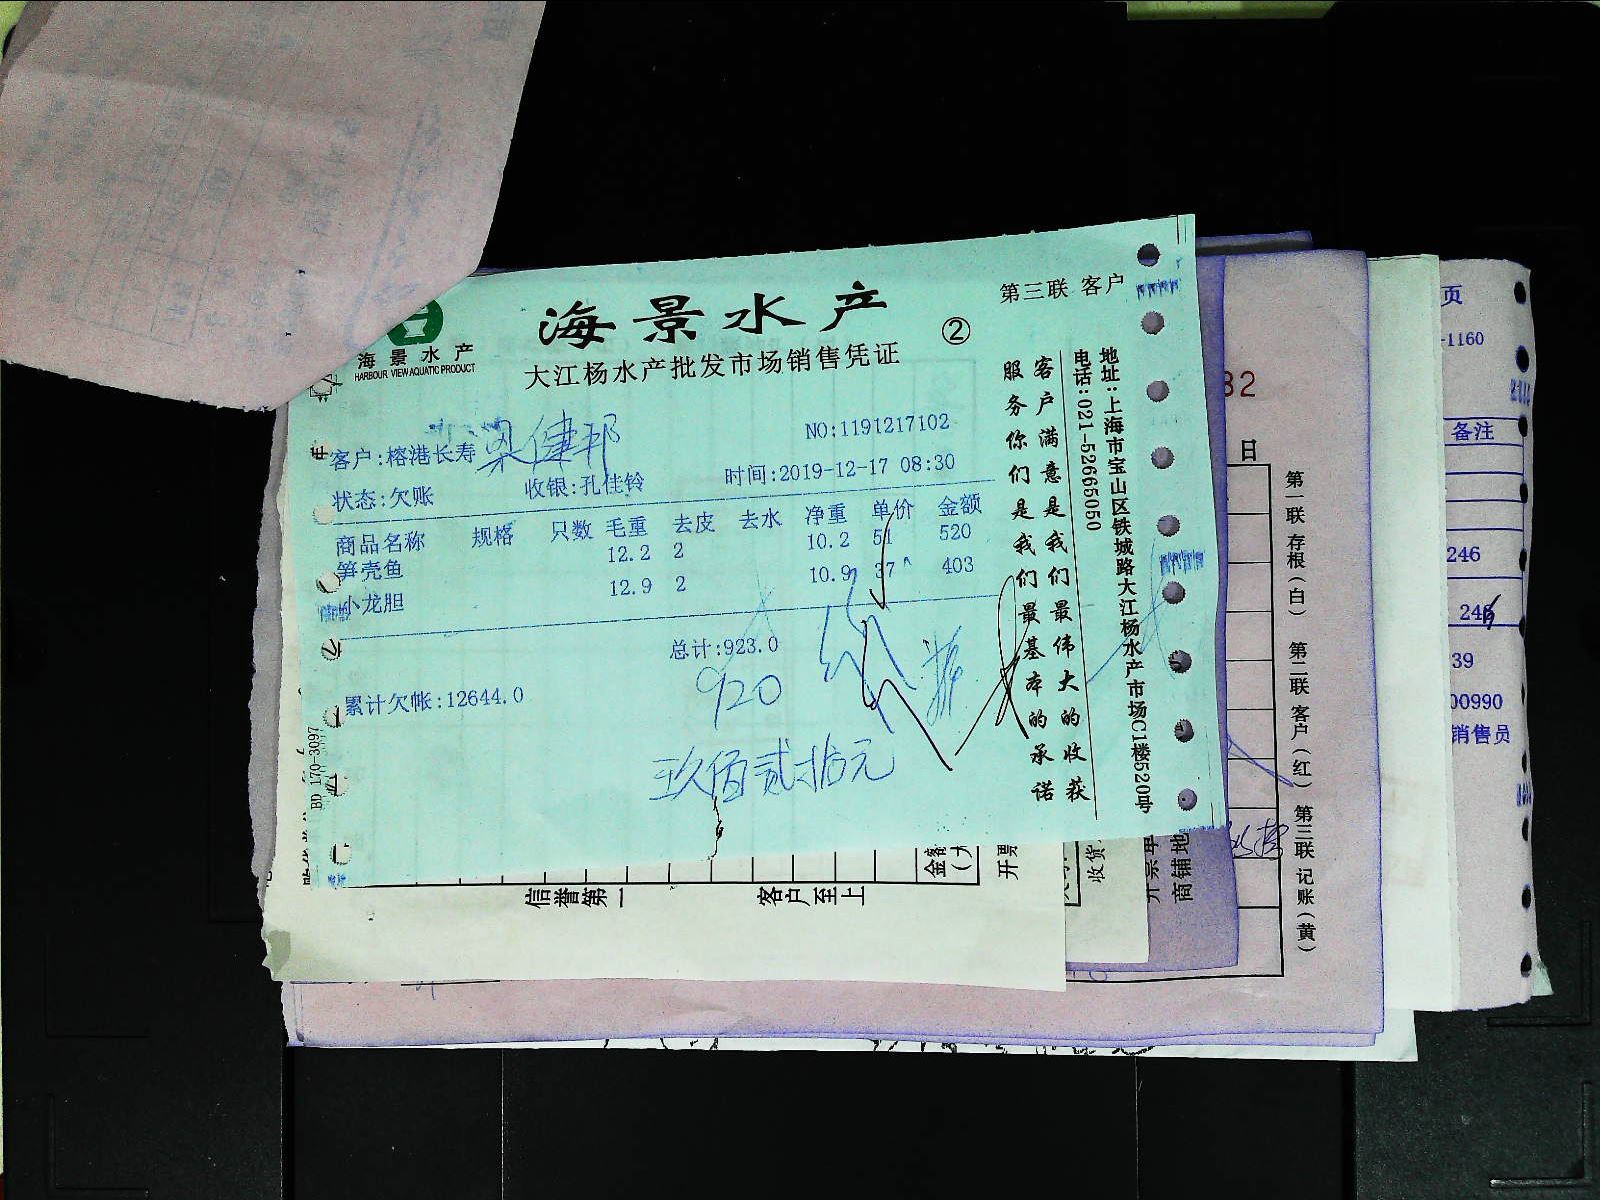 海景水产
HARBOUR VIEW AQUATIC PRODUCT
海景水产
大江杨水产批发市场销售凭证
②
第三联 客户
客户:榕港长寿
NO:1191217102
状态:欠账
收银:孔佳铃
时间:2019-12-17 08:30
商品名称 规格 只数 毛重 去皮 去水 净重 单价 金额
笋壳鱼 12.2 2 10.2 51 520
小龙胆 12.9 2 10.9 37 403
总计:923.0
累计欠帐:12644.0
920
玖佰贰拾元
客户满意是我们最伟大的收获
服务你们是我们最基本的承诺
地址:上海市宝山区铁城路大江杨水产市场C1楼520号
电话:021-52665050
BD 170-3097
信誉第一
客户至上
金额
开票
收货
开票单
商铺地
82
日
第一联 存根(白) 第二联 客户(红) 第三联 记账(黄)
页
-1160
备注
246
246
39
00990
销售员